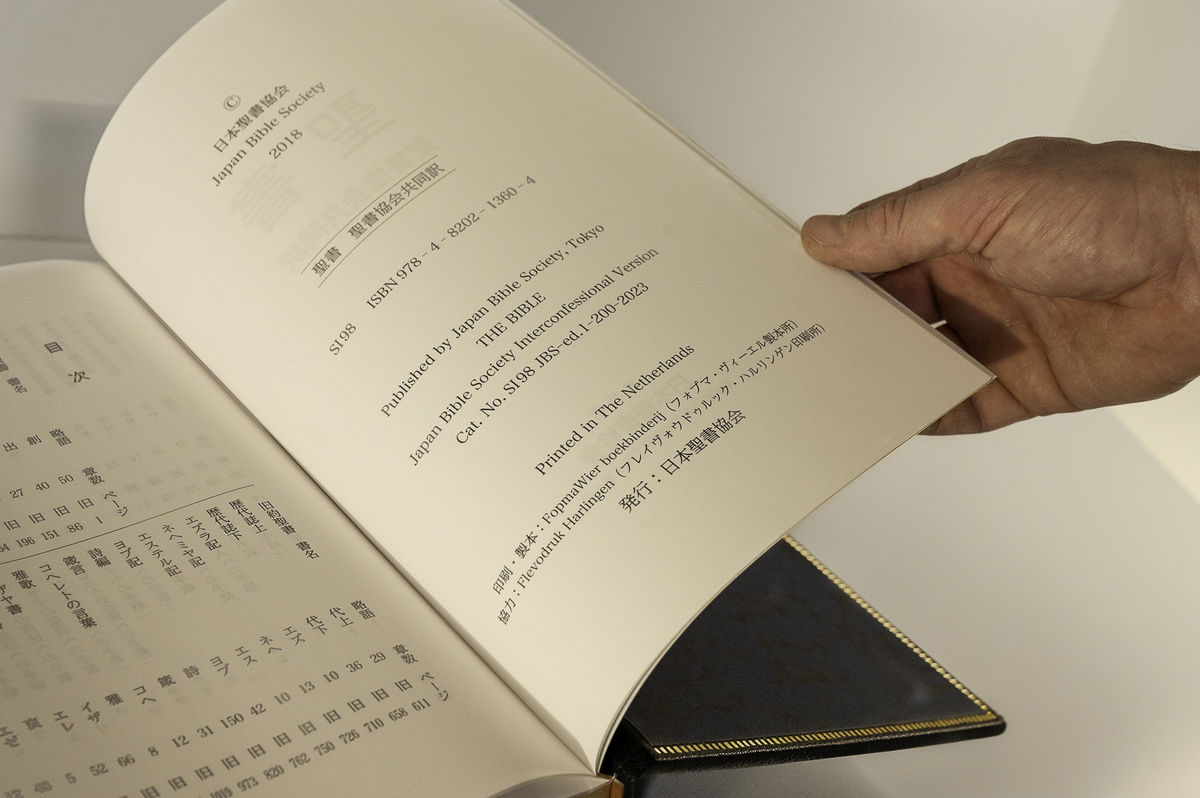 ©
日本聖書協会
Japan Bible Society
2018
聖書 聖書協会共同訳
SI98 ISBN 978-4-8202-1360-4
Published by Japan Bible Society, Tokyo
THE BIBLE
Japan Bible Society Interconfessional Version
Cat. No. SI98 JBS-ed.1-200-2023
Printed in The Netherlands
印刷・製本：FopmaWier boekbinderij (フォプマ・ヴィーエル製本所)
協力：Flevodruk Harlingen (フレイヴォウドゥルック・ハルリンゲン印刷所)
発行：日本聖書協会
目次
書名 略語 章数 ページ
創 50 旧 1
出 40 旧 86
27 旧 151
旧 196
旧約聖書 書名 略語 章数 ページ
歴代誌上 代上 29 旧 611
歴代誌下 代下 36 旧 658
エズラ記 エズ 10 旧 710
ネヘミヤ記 ネヘ 13 旧 726
エステル記 エス 10 旧 750
ヨブ記 ヨブ 42 旧 762
詩編 詩 150 旧 820
箴言 箴 31 旧 973
コヘレトの言葉 コヘ 12 旧 1019
雅歌 雅 8
イザ 66
エレ 52
哀 5
エゼ